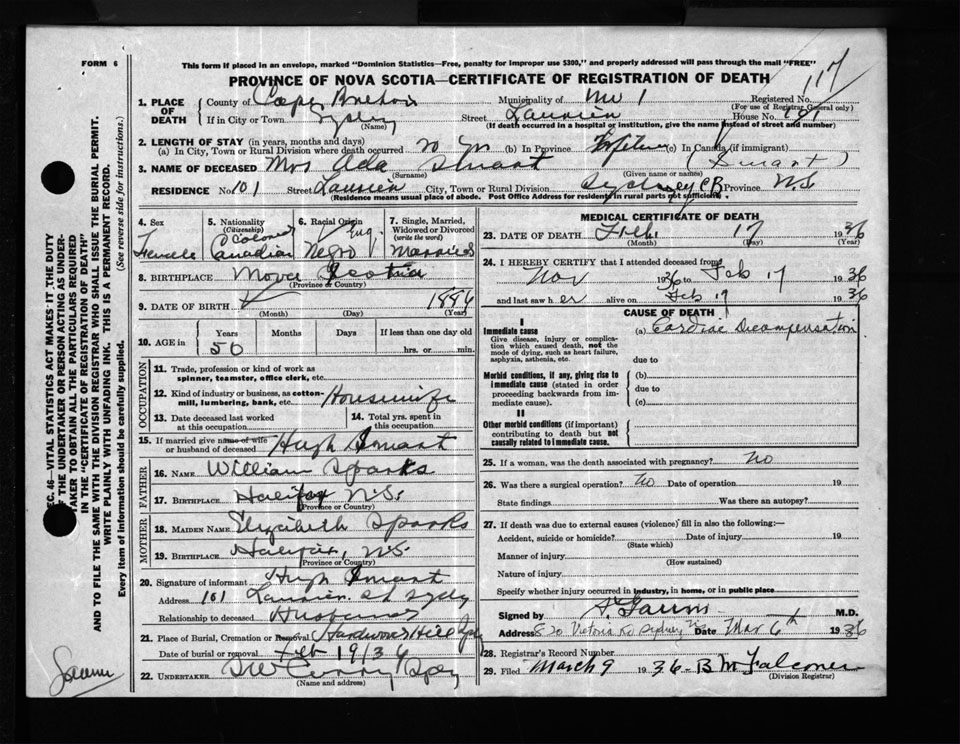 FORM 6
This form if placed in an envelope, marked "Dominion Statistics—Free, penalty for improper use $300," and properly addressed will pass through the mail "FREE"
PROVINCE OF NOVA SCOTIA—CERTIFICATE OF REGISTRATION OF DEATH
117
1. PLACE OF DEATH
County of Cape Breton Municipality of No 1 Registered No.
(For use of Registrar General only)
If in City or Town Sydney Street Laurier House No. 101
(Name) (If death occurred in a hospital or institution, give the name instead of street and number)
2. LENGTH OF STAY (in years, months and days)
(a) In City, Town or Rural Division where death occurred 20 yrs (b) In Province Lifetime (c) In Canada (if immigrant)
3. NAME OF DECEASED Mrs Ada Smart (Smart)
(Surname) (Given name or names)
RESIDENCE No. 101 Street Laurier City, Town or Rural Division Sydney C.B. Province N.S.
(Residence means usual place of abode. Post Office Address for residents in rural parts not sufficient).
4. Sex Female
5. Nationality (Citizenship) Colored Canadian
6. Racial Origin Negro
7. Single, Married, Widowed or Divorced (write the word) Married
8. BIRTHPLACE Nova Scotia
(Province or Country)
9. DATE OF BIRTH 1886
(Month) (Day) (Year)
10. AGE in Years Months Days If less than one day old
50 hrs. or min.
OCCUPATION
11. Trade, profession or kind of work as spinner, teamster, office clerk, etc.
12. Kind of industry or business, as cotton-mill, lumbering, bank, etc. Housewife
13. Date deceased last worked at this occupation
14. Total yrs. spent in this occupation
15. If married give name of wife or husband of deceased Hugh Smart
FATHER
16. NAME William Sparks
17. BIRTHPLACE Halifax N.S.
(Province or Country)
MOTHER
18. MAIDEN NAME Elizabeth Sparks
19. BIRTHPLACE Halifax, N.S.
(Province or Country)
20. Signature of informant Hugh Smart
Address 101 Laurier St Sydney
Relationship to deceased Husband
21. Place of Burial, Cremation or Removal Hardwood Hill Sydney
Date of burial or removal Feb 19/36
22. UNDERTAKER
(Name and address)
MEDICAL CERTIFICATE OF DEATH
23. DATE OF DEATH Feb 17 1936
(Month) (Day) (Year)
24. I HEREBY CERTIFY that I attended deceased from
Nov 1936 to Feb 17 1936
and last saw her alive on Feb 17 1936
CAUSE OF DEATH
I
Immediate cause (a) Cardiac Decompensation
Give disease, injury or complication which caused death, not the mode of dying, such as heart failure, asphyxia, asthenia, etc.
due to
Morbid conditions, if any, giving rise to immediate cause (stated in order proceeding backwards from immediate cause).
(b)
due to
(c)
II
Other morbid conditions (if important) contributing to death but not causally related to immediate cause.
25. If a woman, was the death associated with pregnancy? No
26. Was there a surgical operation? No Date of operation 19
State findings Was there an autopsy?
27. If death was due to external causes (violence) fill in also the following:—
Accident, suicide or homicide? Date of injury 19
(State which)
Manner of injury
(How sustained)
Nature of injury
Specify whether injury occurred in industry, in home, or in public place
Signed by M.D.
Address 820 Victoria Rd Sydney NS Date Mar 6th 1936
28. Registrar's Record Number
29. Filed March 9 1936 B M Falconer
(Division Registrar)
SEC. 46—VITAL STATISTICS ACT MAKES IT THE DUTY
OF THE UNDERTAKER OR PERSON ACTING AS UNDERTAKER TO OBTAIN ALL THE PARTICULARS REQUIRED
IN THE "CERTIFICATE OF REGISTRATION OF DEATH"
AND TO FILE THE SAME WITH THE DIVISION REGISTRAR WHO SHALL ISSUE THE BURIAL PERMIT.
WRITE PLAINLY WITH UNFADING INK. THIS IS A PERMANENT RECORD.
Every item of information should be carefully supplied. (See reverse side for instructions.)